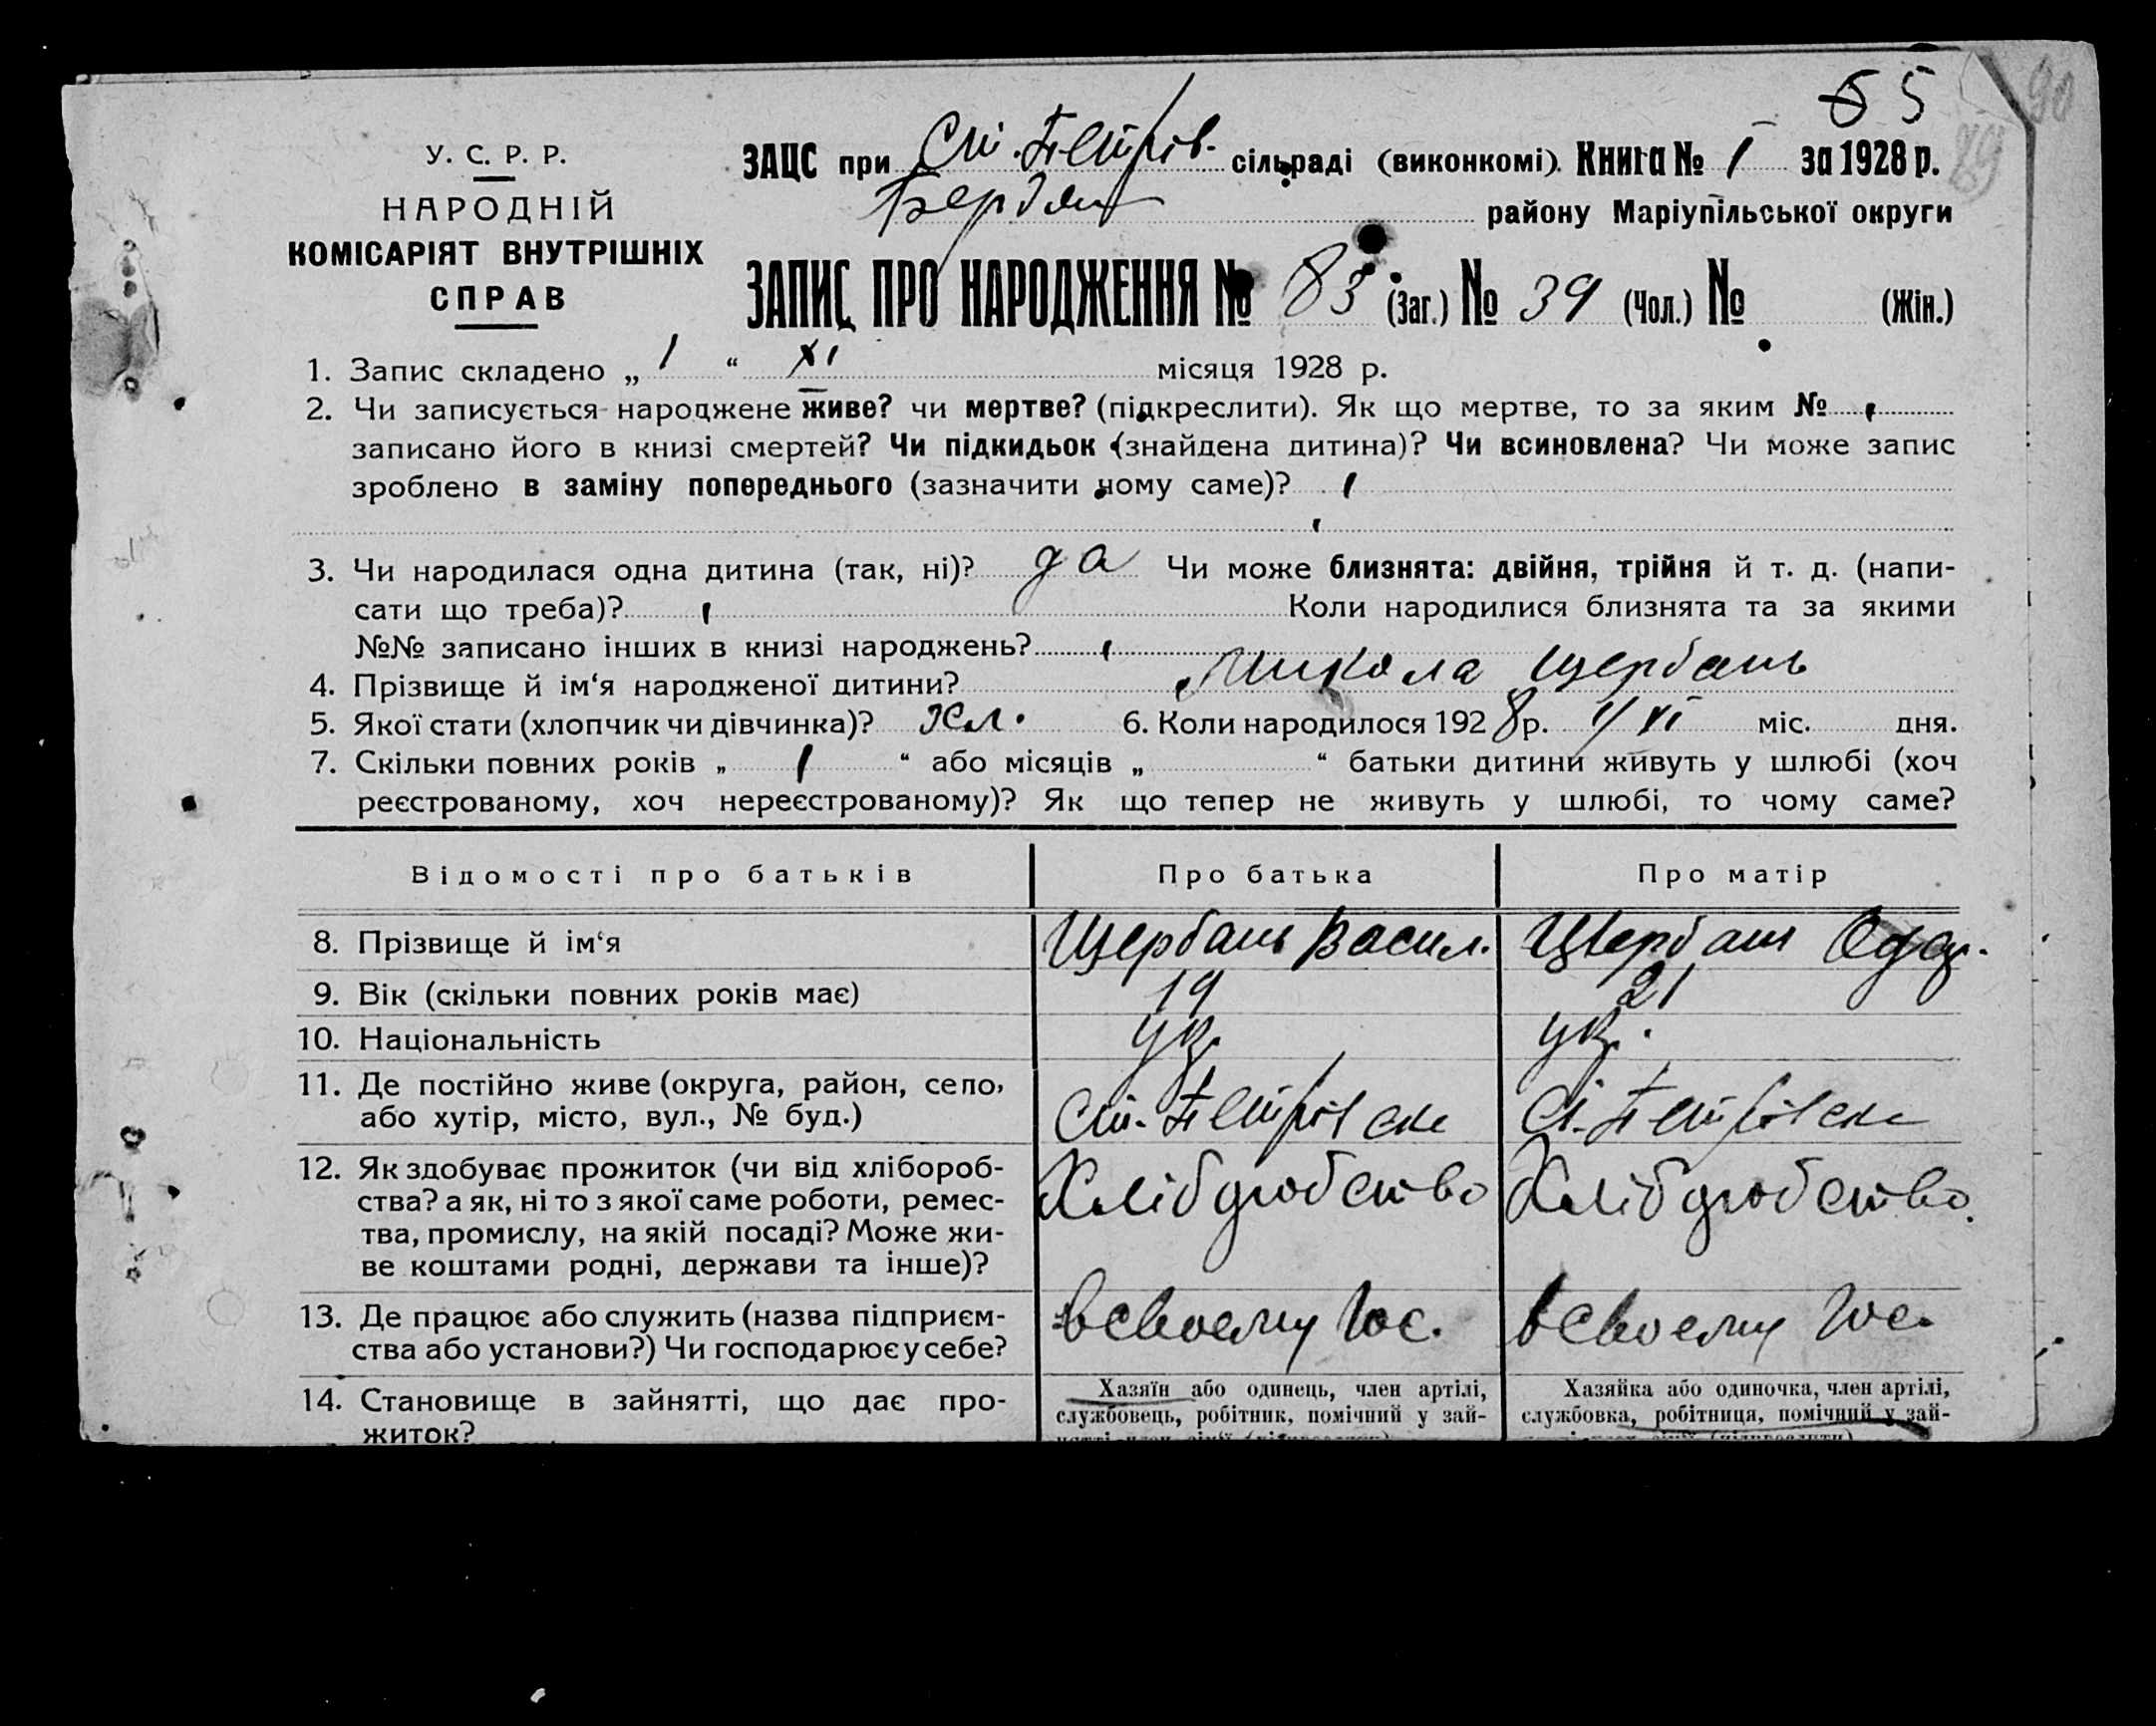 5 5
90
89
У. С. Р. Р.
НАРОДНІЙ
КОМІСАРІЯТ ВНУТРІШНІХ
СПРАВ
ЗАЦС при Ст. Петрів. сільраді (виконкомі). Книга № I за 1928 р.
Бердян району Маріупільської округи
ЗАПИС ПРО НАРОДЖЕННЯ № 83 (Заг.) № 39 (Чол.) № (Жін.)
1. Запис складено „ 1 “ XI місяця 1928 р.
2. Чи записується народжене живе? чи мертве? (підкреслити). Як що мертве, то за яким №
записано його в книзі смертей? Чи підкидьок (знайдена дитина)? Чи всиновлена? Чи може запис
зроблено в заміну попереднього (зазначити чому саме)?
3. Чи народилася одна дитина (так, ні)? да Чи може близнята: двійня, трійня й т. д. (напи-
сати що треба)? Коли народилися близнята та за якими
№№ записано інших в книзі народжень?
4. Прізвище й ім‘я народженої дитини? Микола Щербань
5. Якої стати (хлопчик чи дівчинка)? Хл. 6. Коли народилося 1928 р. 1/XI міс. дня.
7. Скільки повних років „ “ або місяців „ “ батьки дитини живуть у шлюбі (хоч
реєстрованому, хоч нереєстрованому)? Як що тепер не живуть у шлюбі, то чому саме?
Відомості про батьків Про батька Про матір
8. Прізвище й ім‘я Щербань Васил. Щербань
9. Вік (скільки повних років має) 19 21
10. Національність ук. ук.
11. Де постійно живе (округа, район, село,
або хутір, місто, вул., № буд.) Ст. Петрівске Ст. Петрівске
12. Як здобуває прожиток (чи від хлібороб-
ства? а як, ні то з якої саме роботи, ремес-
тва, промислу, на якій посаді? Може жи-
ве коштами родні, держави та інше)? Хлібдробство Хлібдробство.
13. Де працює або служить (назва підприєм-
ства або установи?) Чи господарює у себе? в своему гос. в своему гос.
14. Становище в зайнятті, що дає про-
житок?
Хазяїн або одинець, член артілі,
службовець, робітник, помічний у зай-
Хазяйка або одиночка, член артілі,
службовка, робітниця, помічний у зай-